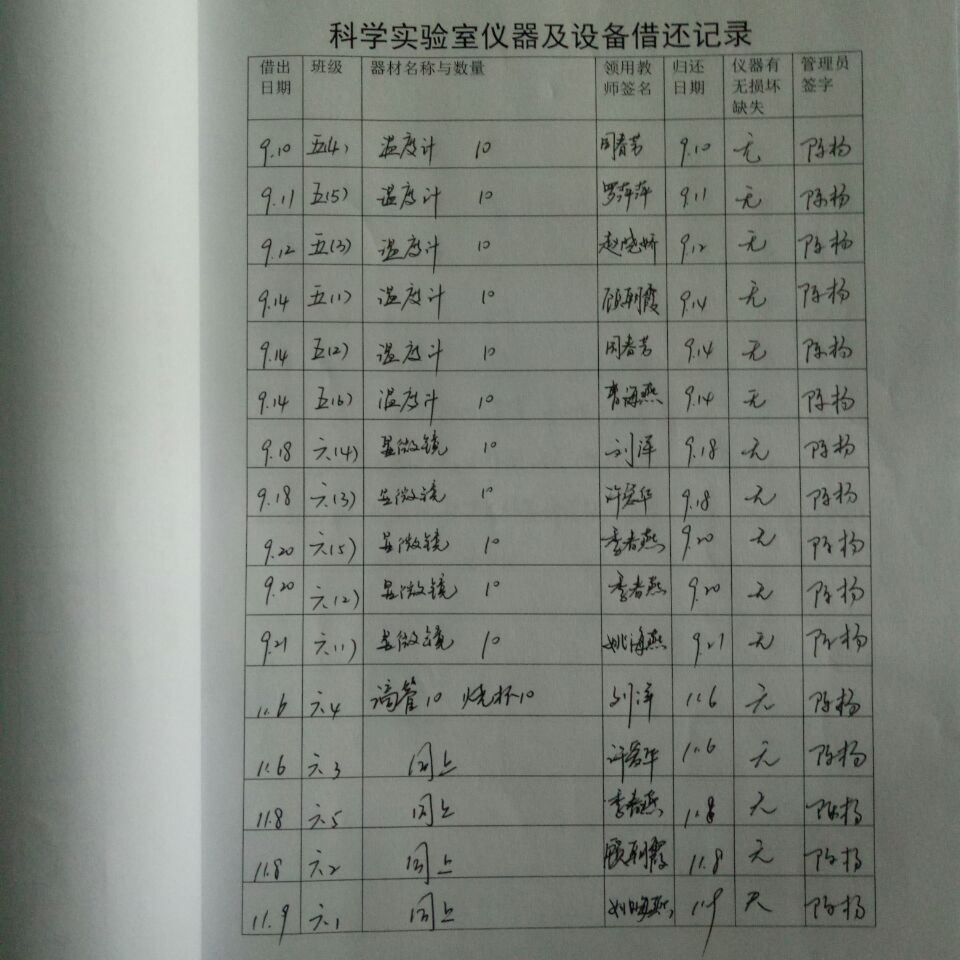 科学实验室仪器及设备借还记录
借出日期 班级 器材名称与数量 领用教师签名 归还日期 仪器有无损坏缺失 管理员签字
9.10 五(4) 温度计 10 周春芳 9.10 无 陈杨
9.11 五(5) 温度计 10 罗萍萍 9.11 无 陈杨
9.12 五(3) 温度计 10 赵晓娇 9.12 无 陈杨
9.14 五(1) 温度计 10 顾朝霞 9.14 无 陈杨
9.14 五(2) 温度计 10 周春芳 9.14 无 陈杨
9.14 五(6) 温度计 10 海燕 9.14 无 陈杨
9.18 六(4) 显微镜 10 刘泽 9.18 无 陈杨
9.18 六(3) 显微镜 10 许 华 9.18 无 陈杨
9.20 六(5) 显微镜 10 李春燕 9.20 无 陈杨
9.20 六(2) 显微镜 10 李春燕 9.20 无 陈杨
9.21 六(1) 显微镜 10 姚海燕 9.21 无 陈杨
11.6 六.4 滴管10 烧杯10 刘泽 11.6 无 陈杨
11.6 六.3 同上 许 华 11.6 无 陈杨
11.8 六.5 同上 李春燕 11.8 无 陈杨
11.8 六.2 同上 顾朝霞 11.8 无 陈杨
11.9 六.1 同上 姚海燕 11.9 无 陈杨